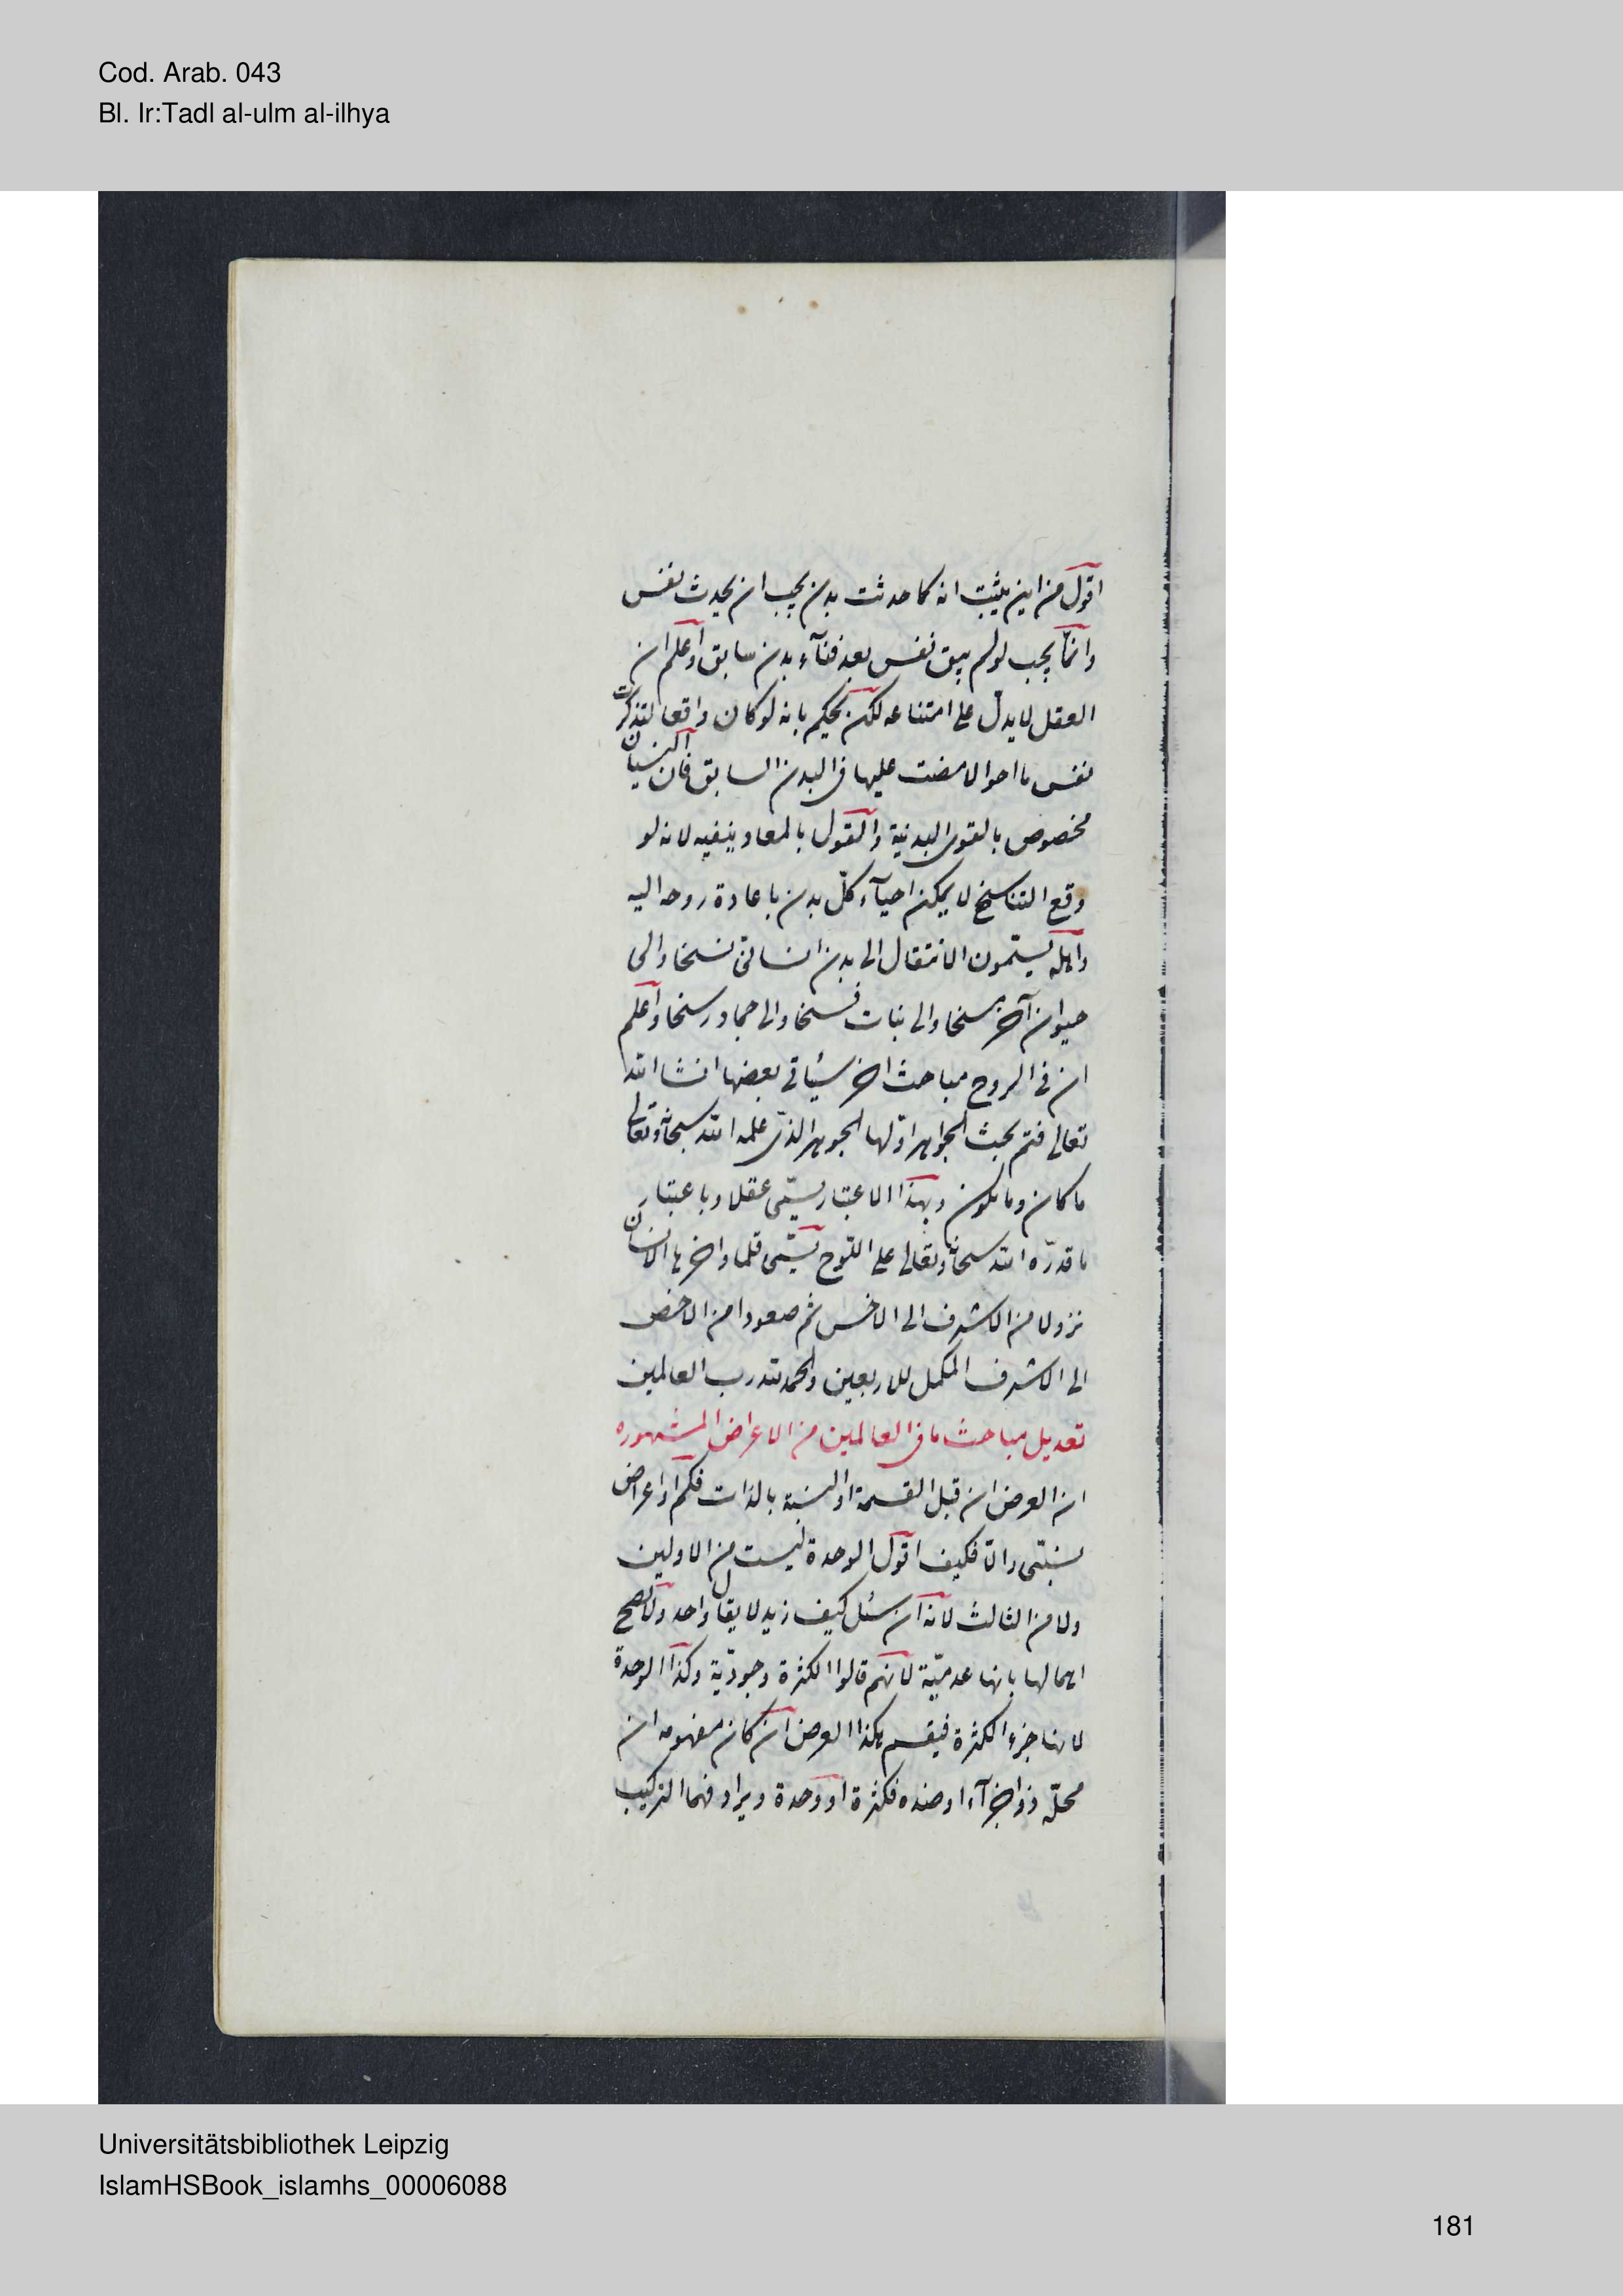 Cod. Arab. 043
Bl. Ir:Tadl al-ulm al-ilhya
اقول من اين يثبت انه كما حدثت بدن يجب ان يحدث نفس
وانمّا يجب لو لم يبق نفس بعد فنآء بدن سابق واعلم ان
العقل لا يدلّ على امتناعه لكن يحكم بانه لو كان واقعا لتذكرت
نفس ما احوالا مضت عليها فى البدن السابق فان النسيان
مخصوص بالقوى البدنية والقول بالمعاد ينفيه لانه لو
وقع التناسخ لا يمكن احيآء كلّ بدن باعادة روحه اليه
واهله يسمّون الانتقال الى بدن انسانىّ نسخا والى
حيوان آخر مسخا والى نبات فسخا والى جماد رسخا واعلم
ان فى الروح مباحث اخر سيأتى بعضها انشا الله
تعالى فتم بحث الجواهر اوّلها الجوهر الذى علمه الله سبحانه وتعالى
ما كان وما يكون وبهذا الاعتبار يسمّى عقلا وباعتبار
ما قدرّه الله سبحانه وتعالى على اللّوح يسمّى قلما واخرها الانسان
نزولا من الاشرف الى الاخس ثم صعودا من الاخص
الى الاشرف المكمل للاربعين والحمد لله رب العالمين
تعديل مباحث ما فى العالمين من الاعراض المشهوره
ان العرض ان قبل القسمة او النسبة بالذات فكم او اعراض
نسبتى والاّ فكيف اقول الوحدة ليست من الاولين
ولا من الثالث لانه ان سئل كيف زيد لا يقال واحد ولا يصح
اهمالها بانها عدميّة لانهم قالوا الكثرة وجوديّة وكذا الوحدة
لانها جزء الكثرة فيقسم هكذا العرض ان كان مفهومه ان
محلّه ذو اجزآء او ضده فكثرة او وحدة ويراد فهما التركيب
Universitätsbibliothek Leipzig
IslamHSBook_islamhs_00006088
181